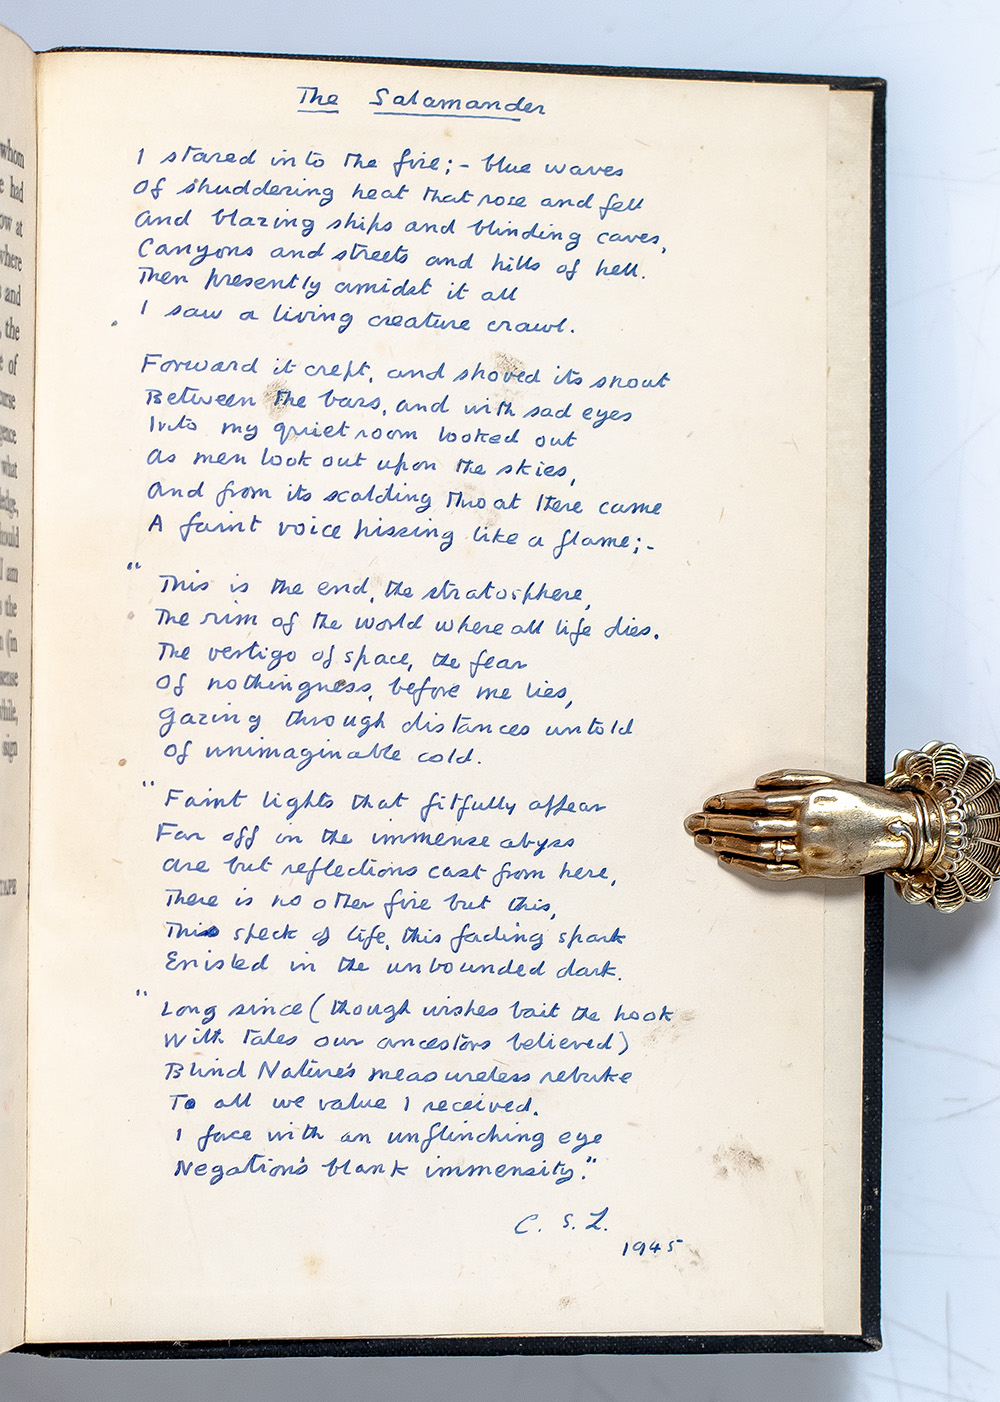 whom
had
ow at
where
and
the
of
urse
gence
what
ledge,
hould
I am
the
(in
sense
while,
sign
TAPE
The Salamander
I stared into the fire;- blue waves
Of shuddering heat that rose and fell
And blazing ships and blinding caves,
Canyons and streets and hills of hell.
Then presently amidst it all
I saw a living creature crawl.
Forward it crept, and shoved its snout
Between the bars, and with sad eyes
Into my quiet room looked out
As men look out upon the skies,
And from its scalding throat there came
A faint voice hissing like a flame;-
"This is the end, the stratosphere,
The rim of the world where all life dies.
The vertigo of space, the fear
Of nothingness, before me lies,
Gazing through distances untold
Of unimaginable cold.
"Faint lights that fitfully appear
Far off in the immense abyss
Are but reflections cast from here,
There is no other fire but this,
This speck of life, this fading spark
Enisled in the unbounded dark.
"Long since (though wishes bait the hook
With tales our ancestors believed)
Blind Nature's measureless rebuke
To all we value I received.
I face with an unflinching eye
Negation's blank immensity."
C. S. L.
1945